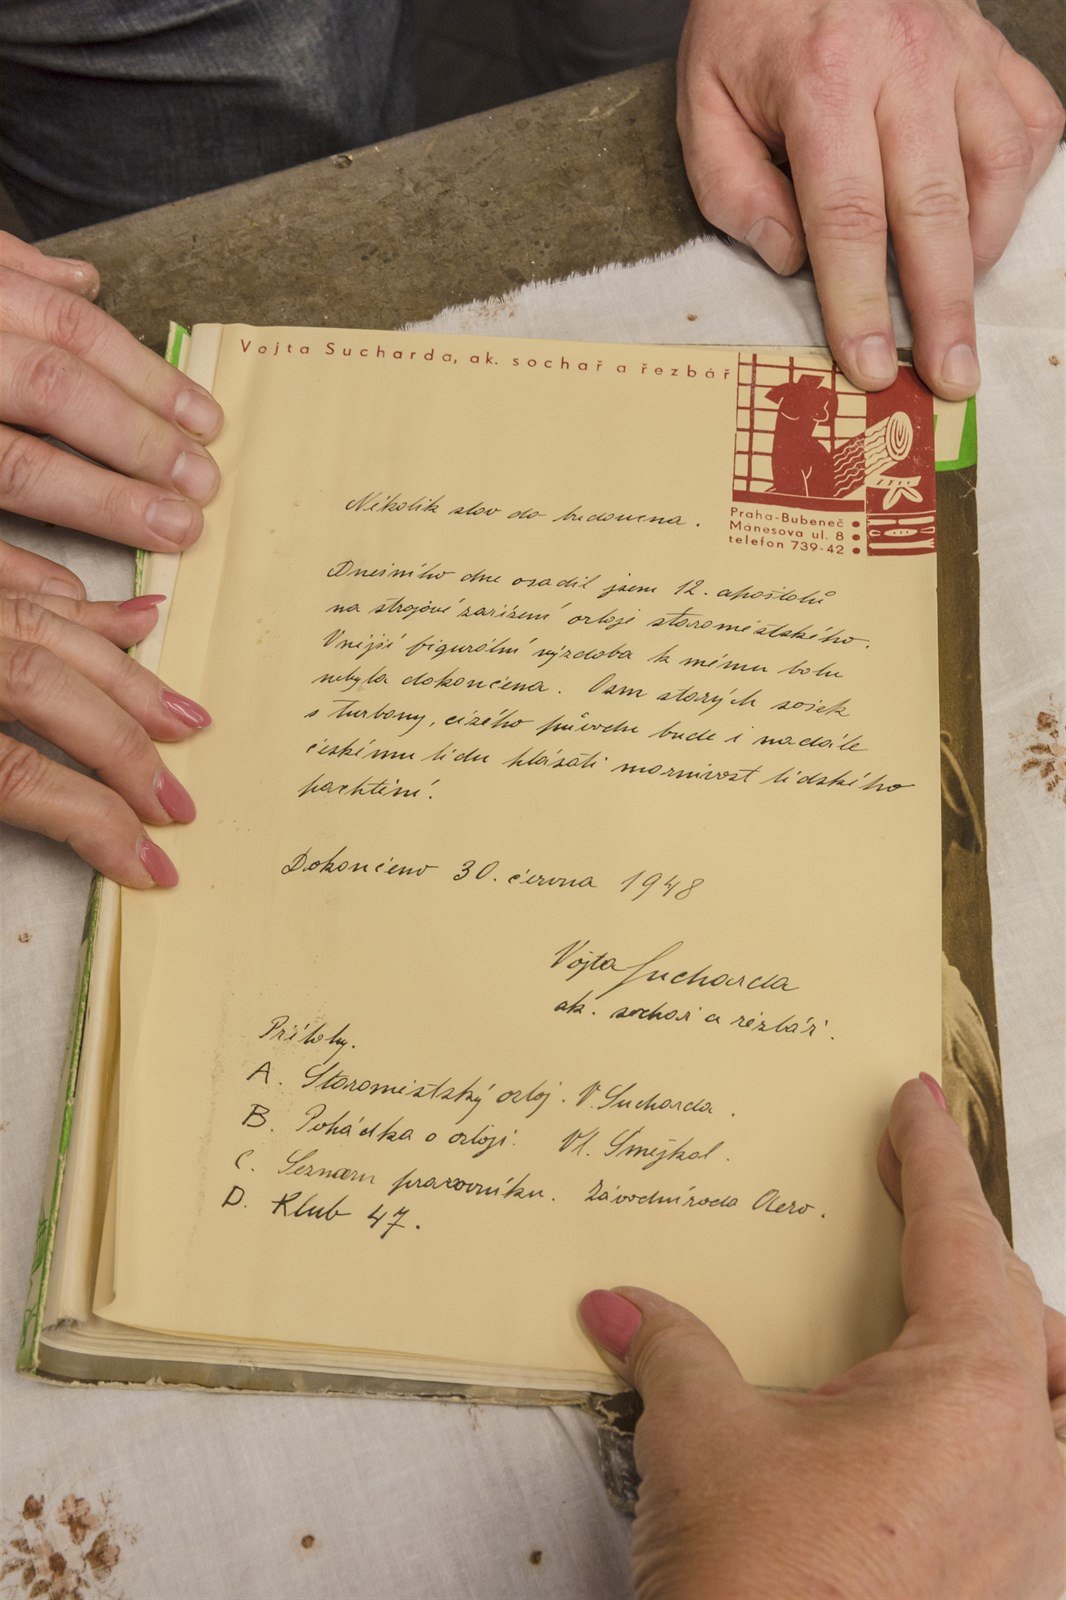 Vojta Sucharda, ak. sochař a řezbář
Praha-Bubeneč
Mánesova ul. 8
telefon 739-42
Několik slov do budoucna.
Dnešního dne osadil jsem 12. apoštolů
na strojové zařízení orloje staroměstského.
Vnější figurální výzdoba k mému bolu
nebyla dokončena. Osm starých sošek
s turbany, cizého původu bude i nadále
českému lidu hlásati marnivost lidského
pachtění.
Dokončeno 30. června 1948
Vojta Sucharda
ak. sochař a řezbář.
Přílohy.
A. Staroměstský orloj. V. Sucharda.
B. Pohádka o orloji. Vl. Smejkal.
C. Seznam pracovníku. Závodní rada Aero.
D. Klub 47.